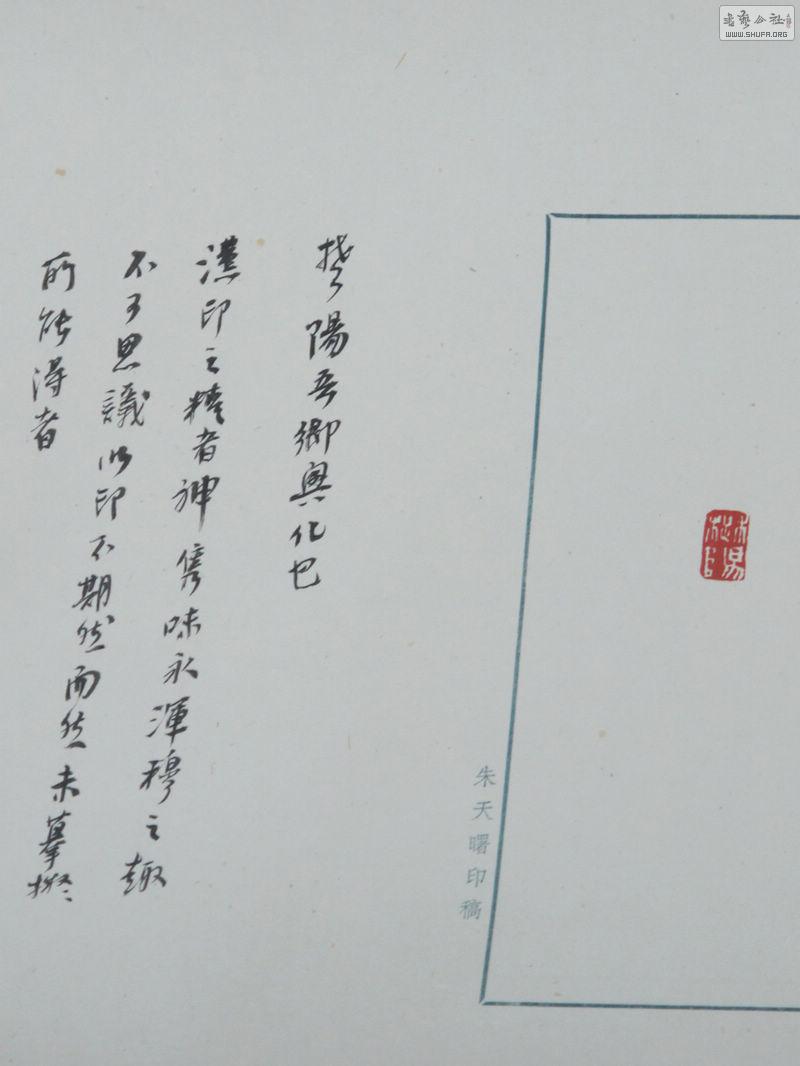 書藝公社
WWW.SHUFA.ORG
朱天曙印稿
楚陽吾鄉興化也
漢印之精者神雋味永渾穆之趣
不可思議此印不期然而然未摹擬
所能得者